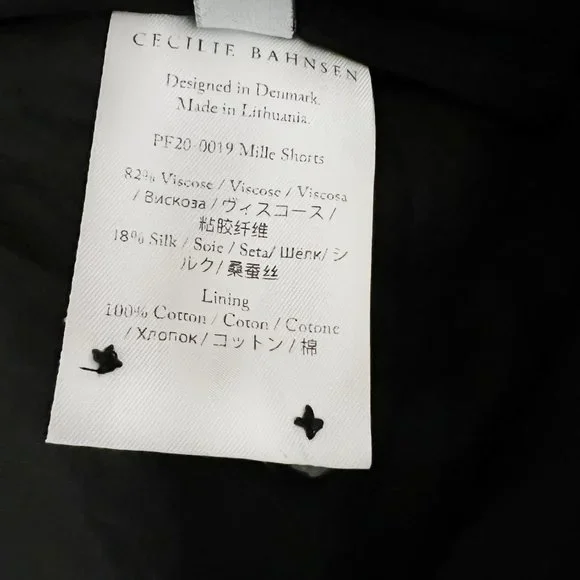 CECILIE BAHNSEN
Designed in Denmark.
Made in Lithuania.
PF20-0019 Mille Shorts
82% Viscose / Viscose / Viscosa
/ Вискоза / ヴィスコース /
粘胶纤维
18% Silk / Soie / Seta/ Шёлк/ シ
ルク/ 桑蚕丝
Lining
100% Cotton / Coton / Cotone
/ Хлопок / コットン / 棉